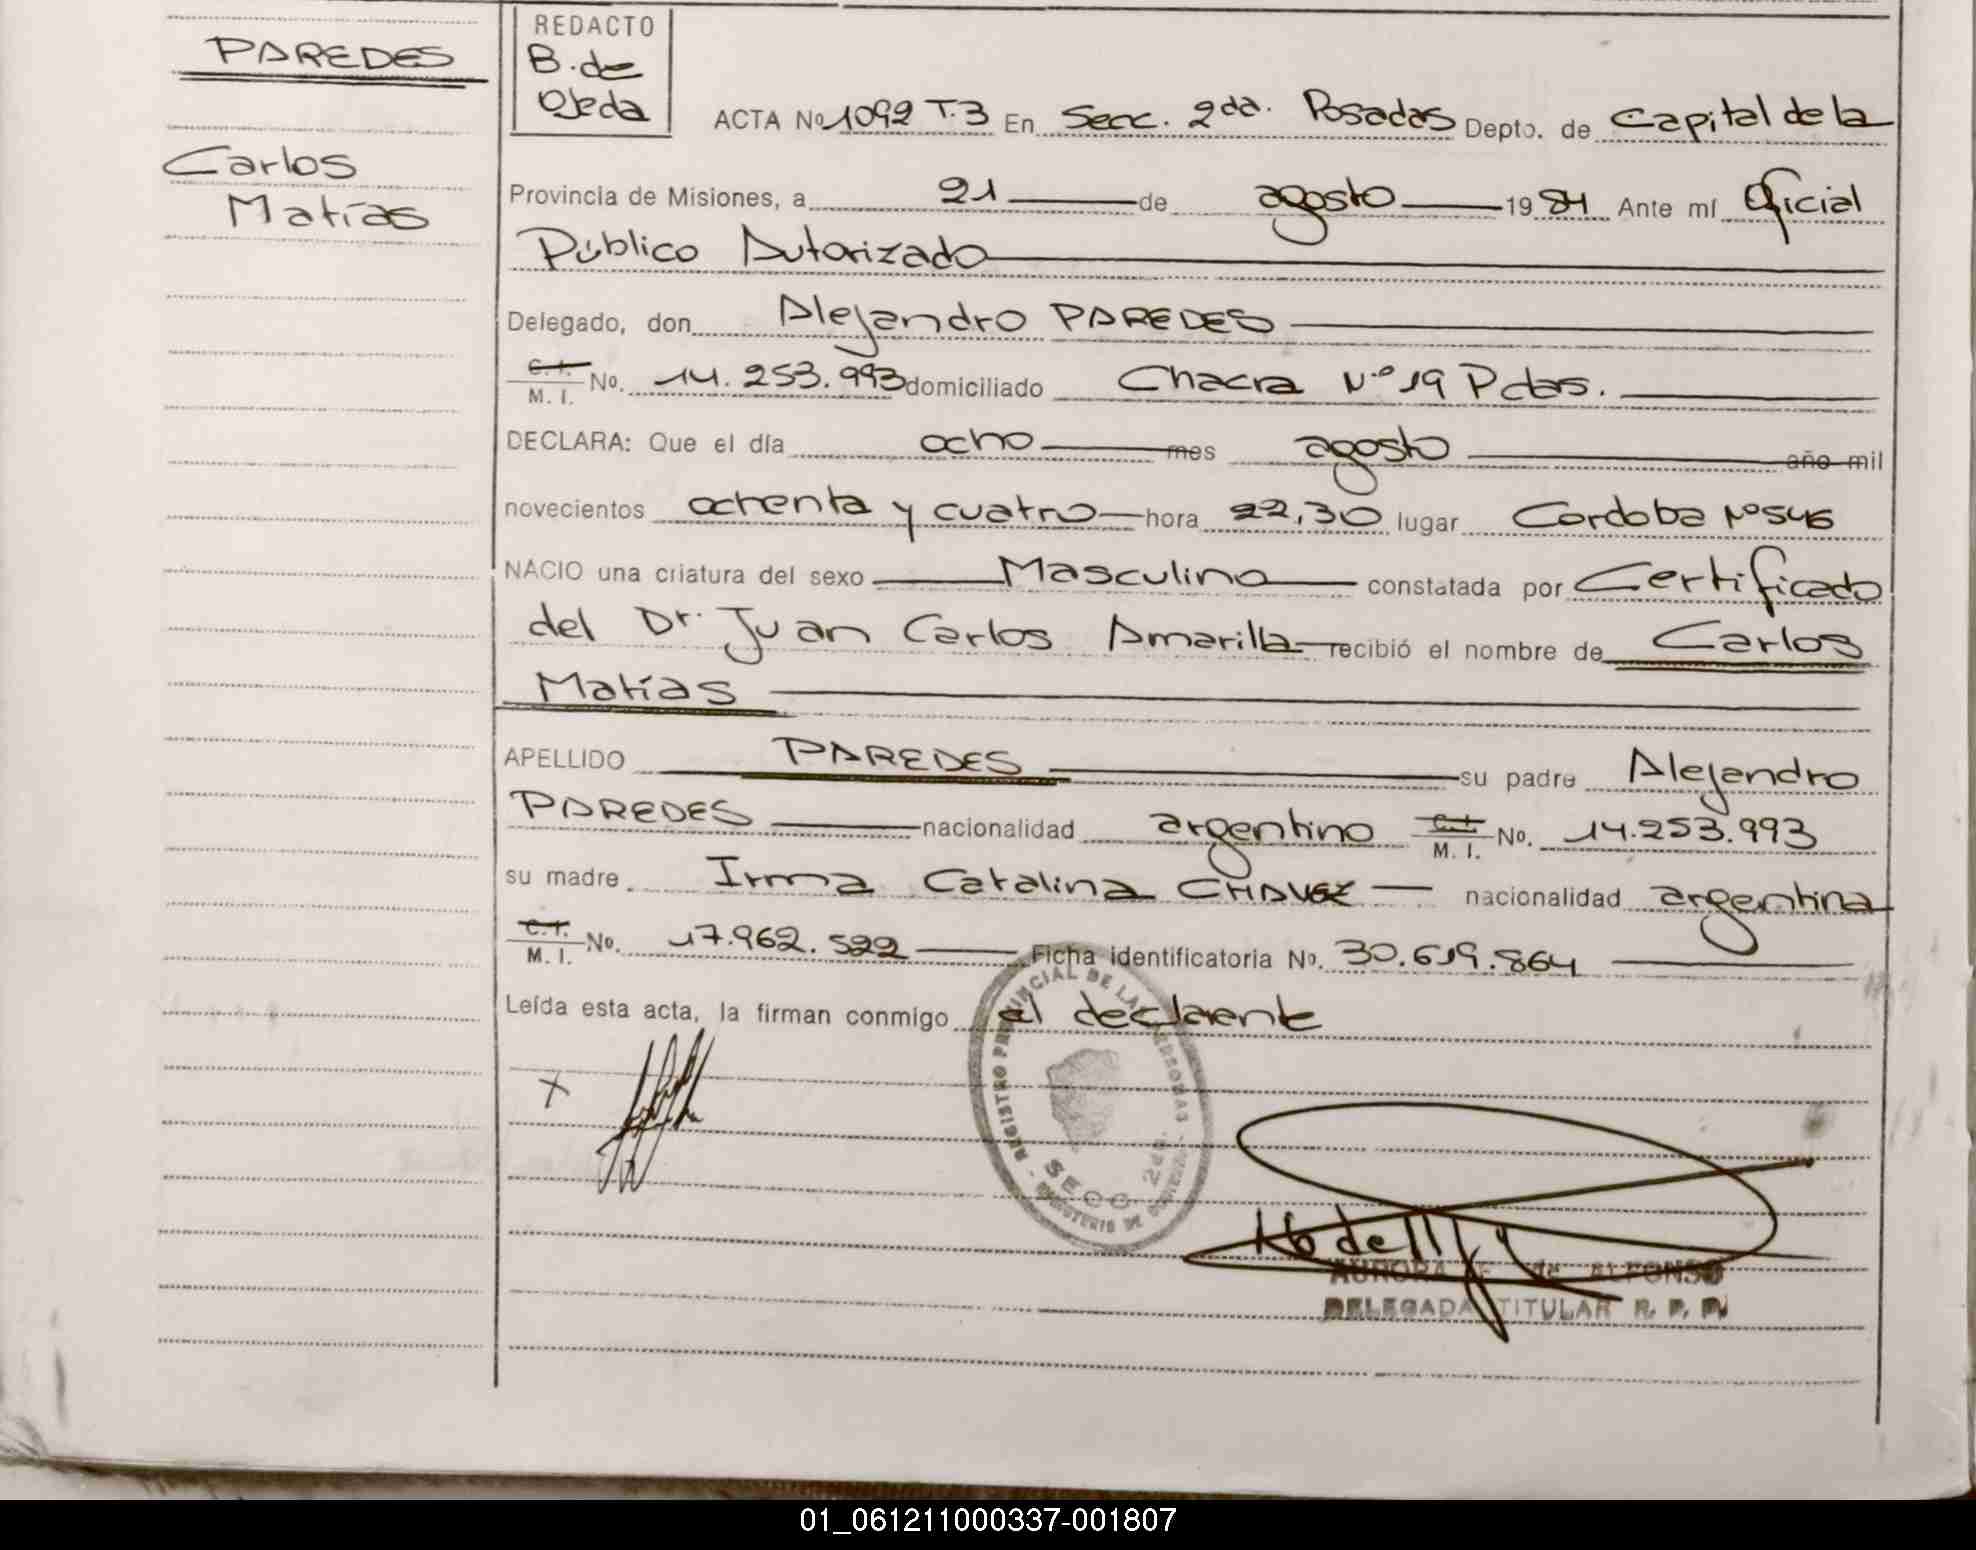 PAREDES
Carlos
Matías
REDACTO
B. de
Ojeda
ACTA Nº 1092 T.3 En Secc. 2da. Posadas Depto. de Capital de la
Provincia de Misiones, a 21 de agosto 1984 Ante mí Oficial
Público Autorizado
Delegado, don Alejandro PAREDES
C. I.
M. I. No. 14.253.993 domiciliado Chacra Nº 19 Pdas.
DECLARA: Que el día ocho mes agosto año mil
novecientos ochenta y cuatro hora 22,30 lugar Cordoba Nº 546
NACIO una criatura del sexo Masculino constatada por Certificado
del Dr. Juan Carlos Amarilla recibió el nombre de Carlos
Matías
APELLIDO PAREDES su padre Alejandro
PAREDES nacionalidad argentino C. I. M. I. No. 14.253.993
su madre Irma Catalina CHAVEZ nacionalidad argentina
C. I.
M. I. No. 17.962.522 Ficha identificatoria No. 30.619.864
Leída esta acta, la firman conmigo el declarante
X
REGISTRO PROVINCIAL DE LAS PERSONAS
SECC. 2da.
MINISTERIO DE GOBIERNO
AURORA de ALFONSO
DELEGADA TITULAR R. P. P.
01_061211000337-001807